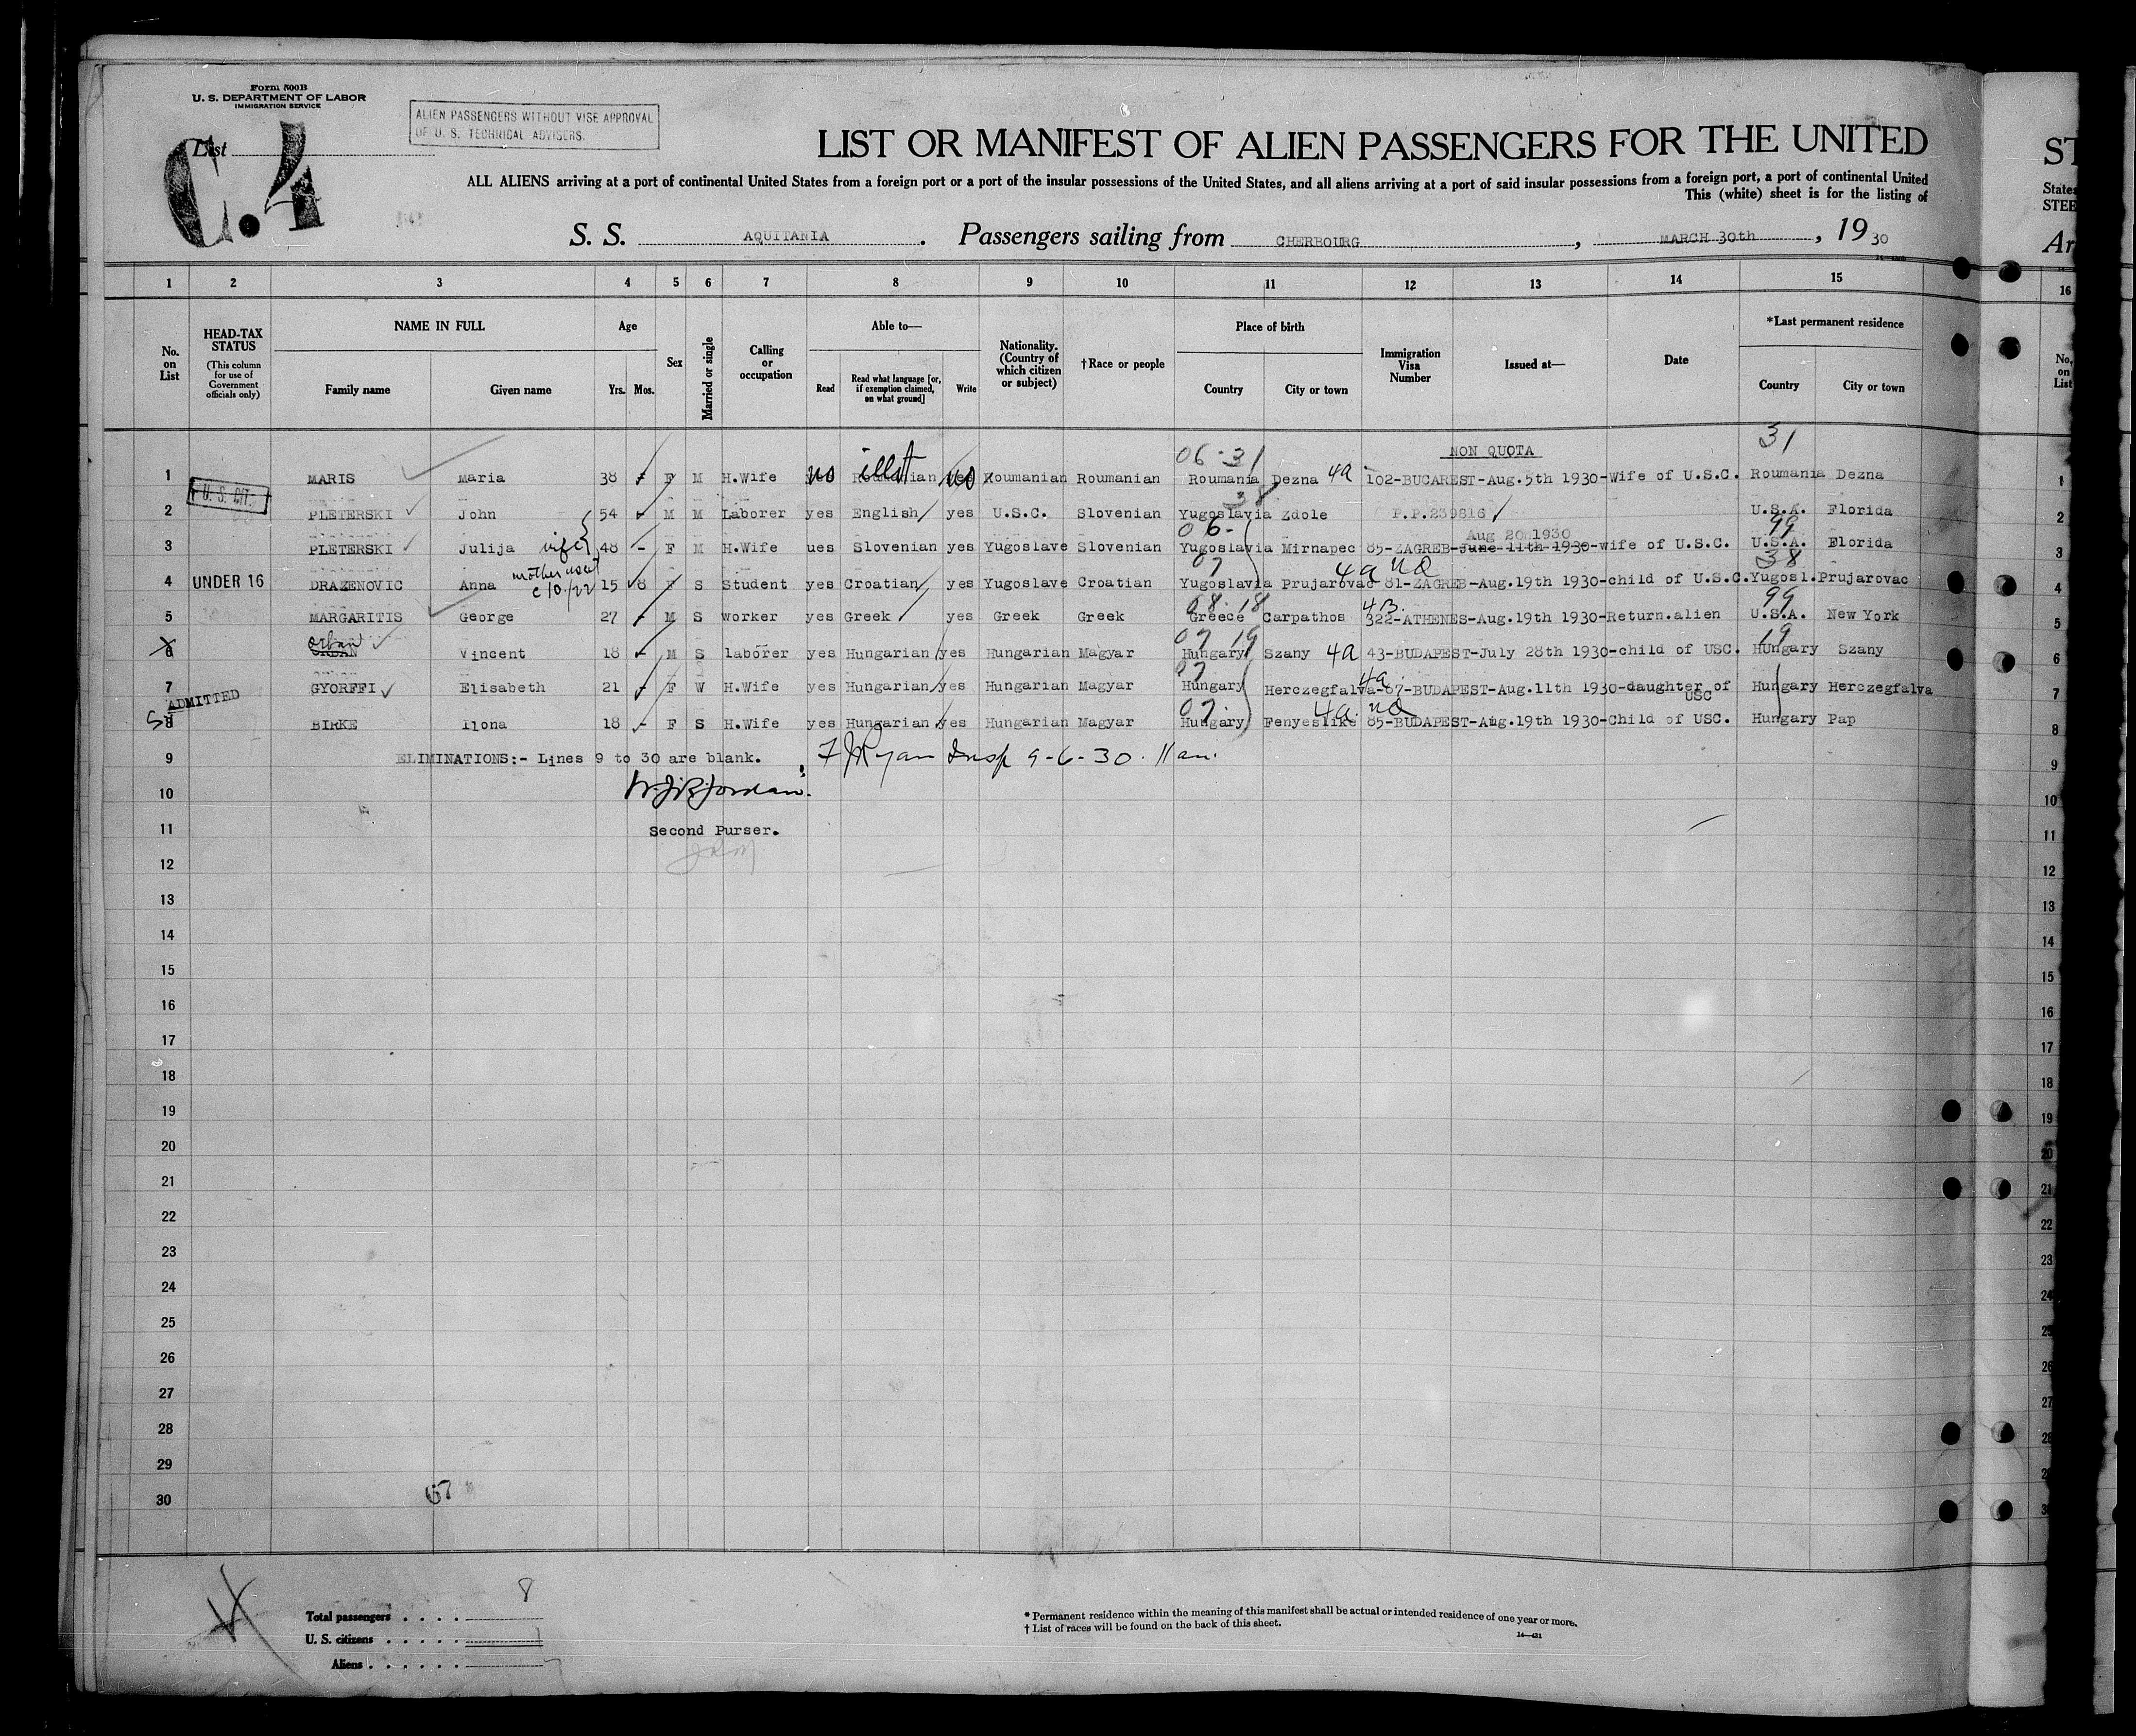 Form 500B
U. S. DEPARTMENT OF LABOR
IMMIGRATION SERVICE
List
C.4
ALIEN PASSENGERS WITHOUT VISE APPROVAL
OF U. S. TECHNICAL ADVISERS.
LIST OR MANIFEST OF ALIEN PASSENGERS FOR THE UNITED
ST
ALL ALIENS arriving at a port of continental United States from a foreign port or a port of the insular possessions of the United States, and all aliens arriving at a port of said insular possessions from a foreign port, a port of continental United
States
This (white) sheet is for the listing of
STEE
S. S. AQUITANIA . Passengers sailing from CHERBOURG , MARCH 30th , 19 30
Ar
1 2 3 4 5 6 7 8 9 10 11 12 13 14 15 16
No. on List
HEAD-TAX STATUS
(This column for use of Government officials only)
NAME IN FULL
Family name Given name
Age
Yrs. Mos.
Sex
Married or single
Calling or occupation
Able to—
Read Read what language [or, if exemption claimed, on what ground] Write
Nationality. (Country of which citizen or subject)
†Race or people
Place of birth
Country City or town
Immigration Visa Number
Issued at—
Date
*Last permanent residence
Country City or town
No. on List
NON QUOTA
06-31 31
1 MARIS Maria 38 - F M H.Wife no illit no Roumanian Roumanian Roumania Dezna 4a 102-BUCAREST-Aug.5th 1930-Wife of U.S.C. Roumania Dezna 1
U. S. CIT.
2 PLETERSKI John 54 - M M Laborer yes English yes U.S.C. Slovenian Yugoslavia Zdole P.P.239816 U.S.A. Florida 2
06- Aug 20 1930 99
3 PLETERSKI Julija wife 48 - F M H.Wife ues Slovenian yes Yugoslave Slovenian Yugoslavia Mirnapec 85-ZAGREB-June 11th 1930-wife of U.S.C. U.S.A. Florida 3
07 4a nd 38
4 UNDER 16 DRAZENOVIC Anna 15 8 F S Student yes Croatian yes Yugoslave Croatian Yugoslavia Prujarovac 81-ZAGREB-Aug.19th 1930-child of U.S.C. Yugosl. Prujarovac 4
08-18 4B. 99
5 MARGARITIS George 27 - M S worker yes Greek yes Greek Greek Greece Carpathos 322-ATHENES-Aug.19th 1930-Return.alien U.S.A. New York 5
Orban 07 19 19
6 URBAN Vincent 18 - M S laborer yes Hungarian yes Hungarian Magyar Hungary Szany 4a 43-BUDAPEST-July 28th 1930-child of USC. HUngary Szany 6
07 4a
7 GYORFFI Elisabeth 21 - F W H.Wife yes Hungarian yes Hungarian Magyar Hungary Herczegfalva-87-BUDAPEST-Aug.11th 1930-daughter of USC Hungary Herczegfalva 7
ADMITTED
07. 4a. nd
8 BIRKE Ilona 18 - F S H.Wife yes Hungarian yes Hungarian Magyar Hungary Fenyeslike 85-BUDAPEST-Aug.19th 1930-Child of USC. Hungary Pap 8
9 ELIMINATIONS:- Lines 9 to 30 are blank. Ryan Insp 9-6-30. 11 am. 9
10 Jordan. 10
11 Second Purser. 11
12 12
13 13
14 14
15 15
16 16
17 17
18 18
19 19
20 20
21 21
22 22
23 23
24 24
25 25
26 26
27 27
28 28
29
30
Total passengers . . . . 8
U. S. citizens . . . . . 1
Aliens . . . . . . 7
* Permanent residence within the meaning of this manifest shall be actual or intended residence of one year or more.
† List of races will be found on the back of this sheet.